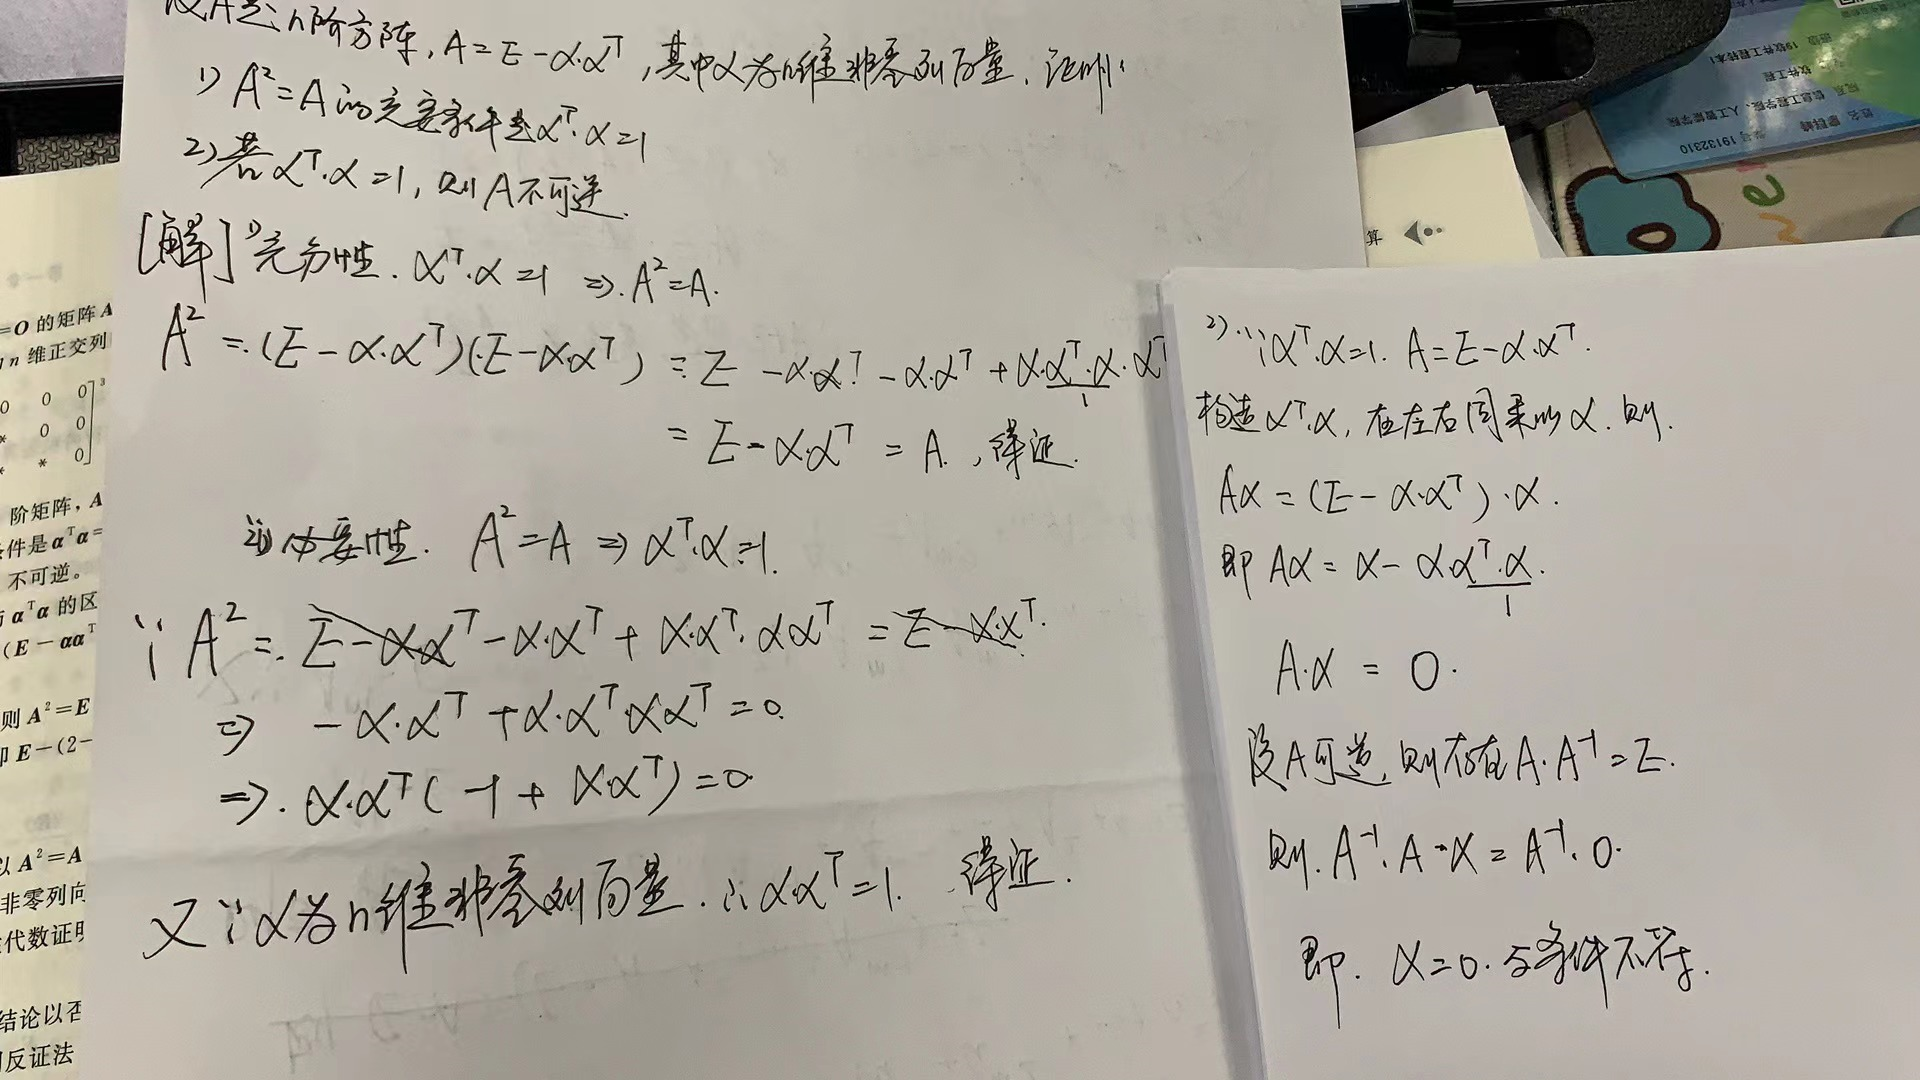 设A是n阶方阵, A=E-α·αᵀ, 其中α为n维非零列向量. 证明:
1) A²=A的充要条件是αᵀ·α=1
2) 若αᵀ·α=1, 则A不可逆.
[解] 1) 充分性. αᵀ·α=1 ⇒ A²=A.
A²=(E-α·αᵀ)(E-α·αᵀ)=E-α·αᵀ-α·αᵀ+α·αᵀ·α·αᵀ
1
=E-α·αᵀ=A, 得证.
必要性. A²=A ⇒ αᵀ·α=1.
∵ A²=E-α·αᵀ-α·αᵀ+α·αᵀ·ααᵀ=E-α·αᵀ.
⇒ -α·αᵀ+α·αᵀ·ααᵀ=0.
⇒. α·αᵀ(-1+ααᵀ)=0.
又∵α为n维非零列向量. ∴α·αᵀ=1. 得证.
2) ∵αᵀ·α=1. A=E-α·αᵀ.
构造αᵀ·α, 在左右同乘以α. 则.
Aα=(E-α·αᵀ)·α.
即 Aα=α-α·αᵀ·α.
1
A·α=0.
设A可逆, 则存在A·A⁻¹=E.
则. A⁻¹·A·α=A⁻¹·0.
即. α=0. 与条件不符.
=O 的矩阵 A
n 维正交列
0 0 0]³
* 0 0
* * 0
阶矩阵, A
件是 αᵀα=
不可逆。
αᵀα 的区
(E-ααᵀ
则 A²=E
即 E-(2-
以 A²=A
非零列向
代数证明
结论以否
反证法
算
19软件工程转本1
软件工程
信息工程学院、人工智能学院
19132310